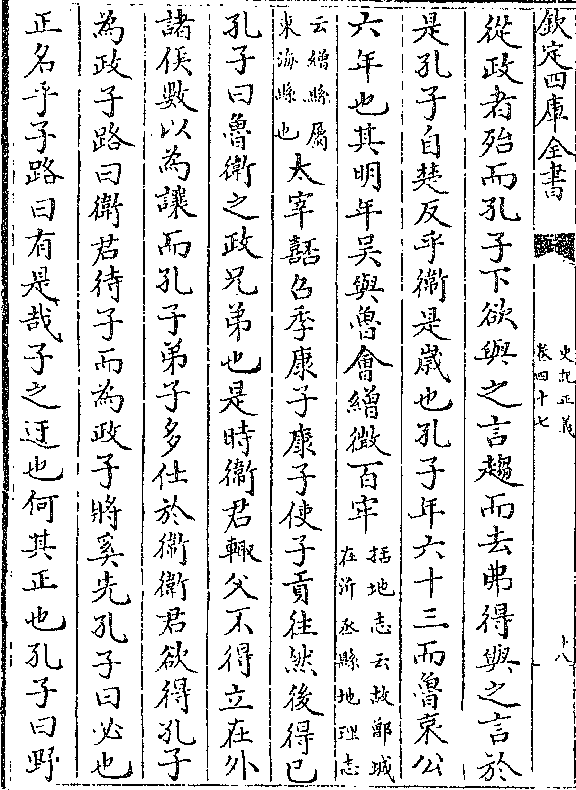 欽定四庫全書
史記正義
卷四十七
十八
從政者殆而孔子下欲與之言趨而去弗得與之言於
是孔子自楚反乎衛是歲也孔子年六十三而魯哀公
六年也其明年吳與魯會繒徵百牢括地志云故鄫城
在沂丞縣地理志
云繒縣屬
東海縣也太宰嚭召季康子康子使子貢往然後得已
孔子曰魯衛之政兄弟也是時衛君輒父不得立在外
諸侯數以為讓而孔子弟子多仕於衛衛君欲得孔子
為政子路曰衛君待子而為政子將奚先孔子曰必也
正名乎子路曰有是哉子之迂也何其正也孔子曰野